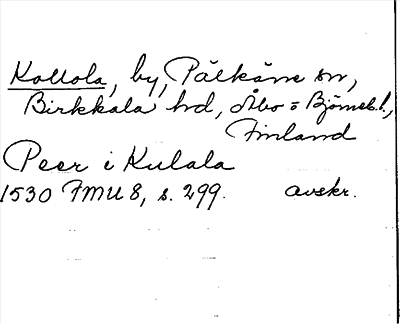 Kollola, by, Pälkäne sn,
Birkkala hd, Åbo = Björneb. l.,
Finland
Peer i Kulala
1530 FMU 8, s. 299. avskr.